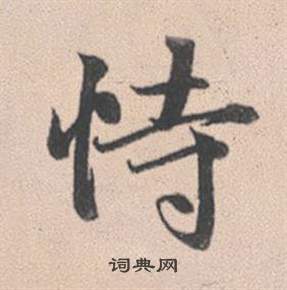 恃
词典网